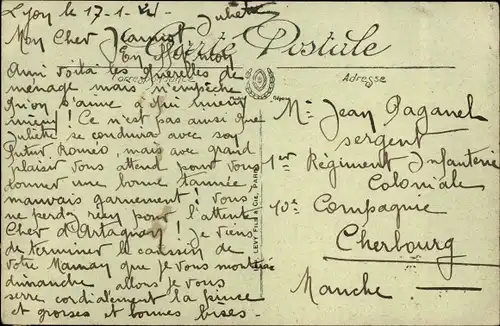 Lyon le 17-1-
Juliette
Mon Cher
Carte Postale
Correspondance
Adresse
Ainsi voilà les querelles de
menage mais n'empêche
qu'on s'aime à qui mieux
mieux! Ce n'est pas ainsi que
Juliette se conduira avec son
futur Roméo, mais avec grand
plaisir vous attend pour vous
donner une bonne tannée,
mauvais garnement! Vous
ne perdez rien pour l'attente
Cher d'Artagnan! Je viens
de terminer le coussin de
votre Maman que je vous montrerai
dimanche allons je vous
serre cordialement la pince
et grosses et bonnes bises-
LEVY FILS & CIE, PARIS
Mr Jean Paganel
sergent
1er Régiment Infanterie
Coloniale
10e Compagnie
Cherbourg
Manche